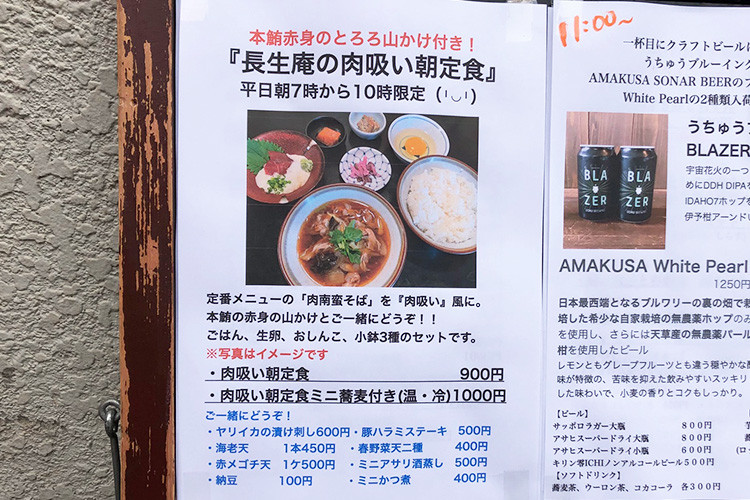 本鮪赤身のとろろ山かけ付き！
『長生庵の肉吸い朝定食』
平日朝7時から10時限定 (╵◡╵)
定番メニューの「肉南蛮そば」を『肉吸い』風に。
本鮪の赤身の山かけとご一緒にどうぞ！！
ごはん、生卵、おしんこ、小鉢3種のセットです。
※写真はイメージです
・肉吸い朝定食 900円
・肉吸い朝定食ミニ蕎麦付き(温・冷)1000円
ご一緒にどうぞ！
・ヤリイカの漬け刺し600円・豚ハラミステーキ 500円
・海老天 1本450円 ・春野菜天二種 400円
・赤メゴチ天 1ケ500円 ・ミニアサリ酒蒸し 500円
・納豆 100円 ・ミニかつ煮 400円
11:00~
一杯目にクラフトビールに
うちゅうブルーイング
AMAKUSA SONAR BEERのブ
White Pearlの2種類入荷
BLA
ZER
BLA
ZER
うちゅうブ
BLAZER
宇宙花火の一つ
めにDDH DIPA
IDAHO7ホップを
伊予柑アーンド
AMAKUSA White Pearl
1250円
日本最西端となるブルワリーの裏の畑で栽
培した希少な自家栽培の無農薬ホップのみ
を使用し、さらには天草産の無農薬パール
柑を使用したビール
レモンともグレープフルーツとも違う穏やかな酸
味が特徴の、苦味を抑えた飲みやすいスッキリ
した味わいで、小麦の香りとコクもしっかり。
【ビール】
サッポロラガー大瓶 800円
アサヒスーパードライ大瓶 800円
アサヒスーパードライ小瓶 600円
キリン零ICHIノンアルコールビール500円
【ソフトドリンク】
蕎麦茶、ウーロン茶、コカコーラ 各300円